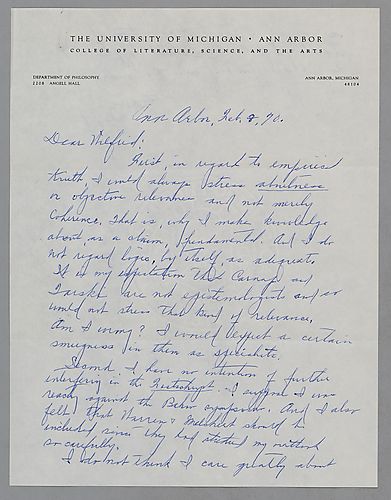 THE UNIVERSITY OF MICHIGAN · ANN ARBOR
COLLEGE OF LITERATURE, SCIENCE, AND THE ARTS
DEPARTMENT OF PHILOSOPHY
2208 ANGELL HALL
ANN ARBOR, MICHIGAN
48104
Ann Arbor, Feb. 8, 70.
Dear Wilfrid:
First in regard to empirical
truth, I would always stress
or objective relevance and not merely
Coherence. That is, why I make knowledge
about as a claim, fundamental. And I do
not regard logic, by itself, as adequate.
It is my expectation that Carnap and
Tarski are not epistemologists and so
would not stress this kind of relevance.
Am I wrong? I would expect a certain
smugness in them as specialists.
Second, I have no intention of further
interfering in the Festschrift. I suppose I was
reacting against the symposium. And I also
felt that Warren & Melchert should be
included since they had studied my method
so carefully.
I do not think I care greatly about